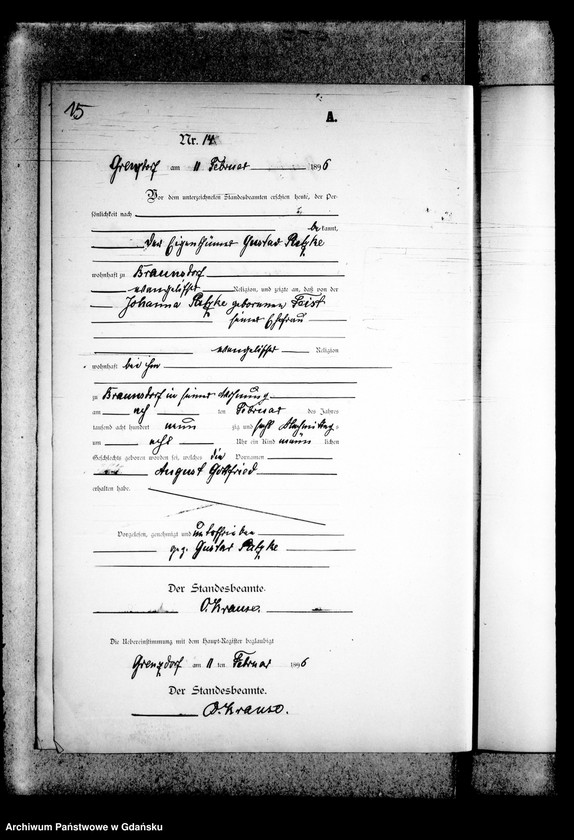 15
A.
Nr. 14
Grenzdorf am 11 Februar 1896
Vor dem unterzeichneten Standesbeamten erschien heute, der Per-
sönlichkeit nach
be kannt,
der Eigenthümer Gustav
wohnhaft zu Braunsdorf
evangelischer Religion, und zeigte an, daß von der
Johanna geborenen Feist
seiner Ehefrau
evangelischer Religion
wohnhaft bei ihm
zu Braunsdorf in seiner Wohnung
am ten Februar des Jahres
tausend acht hundert neun zig und sechs Nachmittags
um acht Uhr ein Kind männ lichen
Geschlechts geboren worden sei, welches die Vornamen
August Gottfried
erhalten habe.
Vorgelesen, genehmigt und unterschrieben
gez. Gustav
Der Standesbeamte.
O. Krause.
Die Uebereinstimmung mit dem Haupt-Register beglaubigt
Grenzdorf am 11 ten Februar 1896
Der Standesbeamte.
O. Krause.
Archiwum Państwowe w Gdańsku